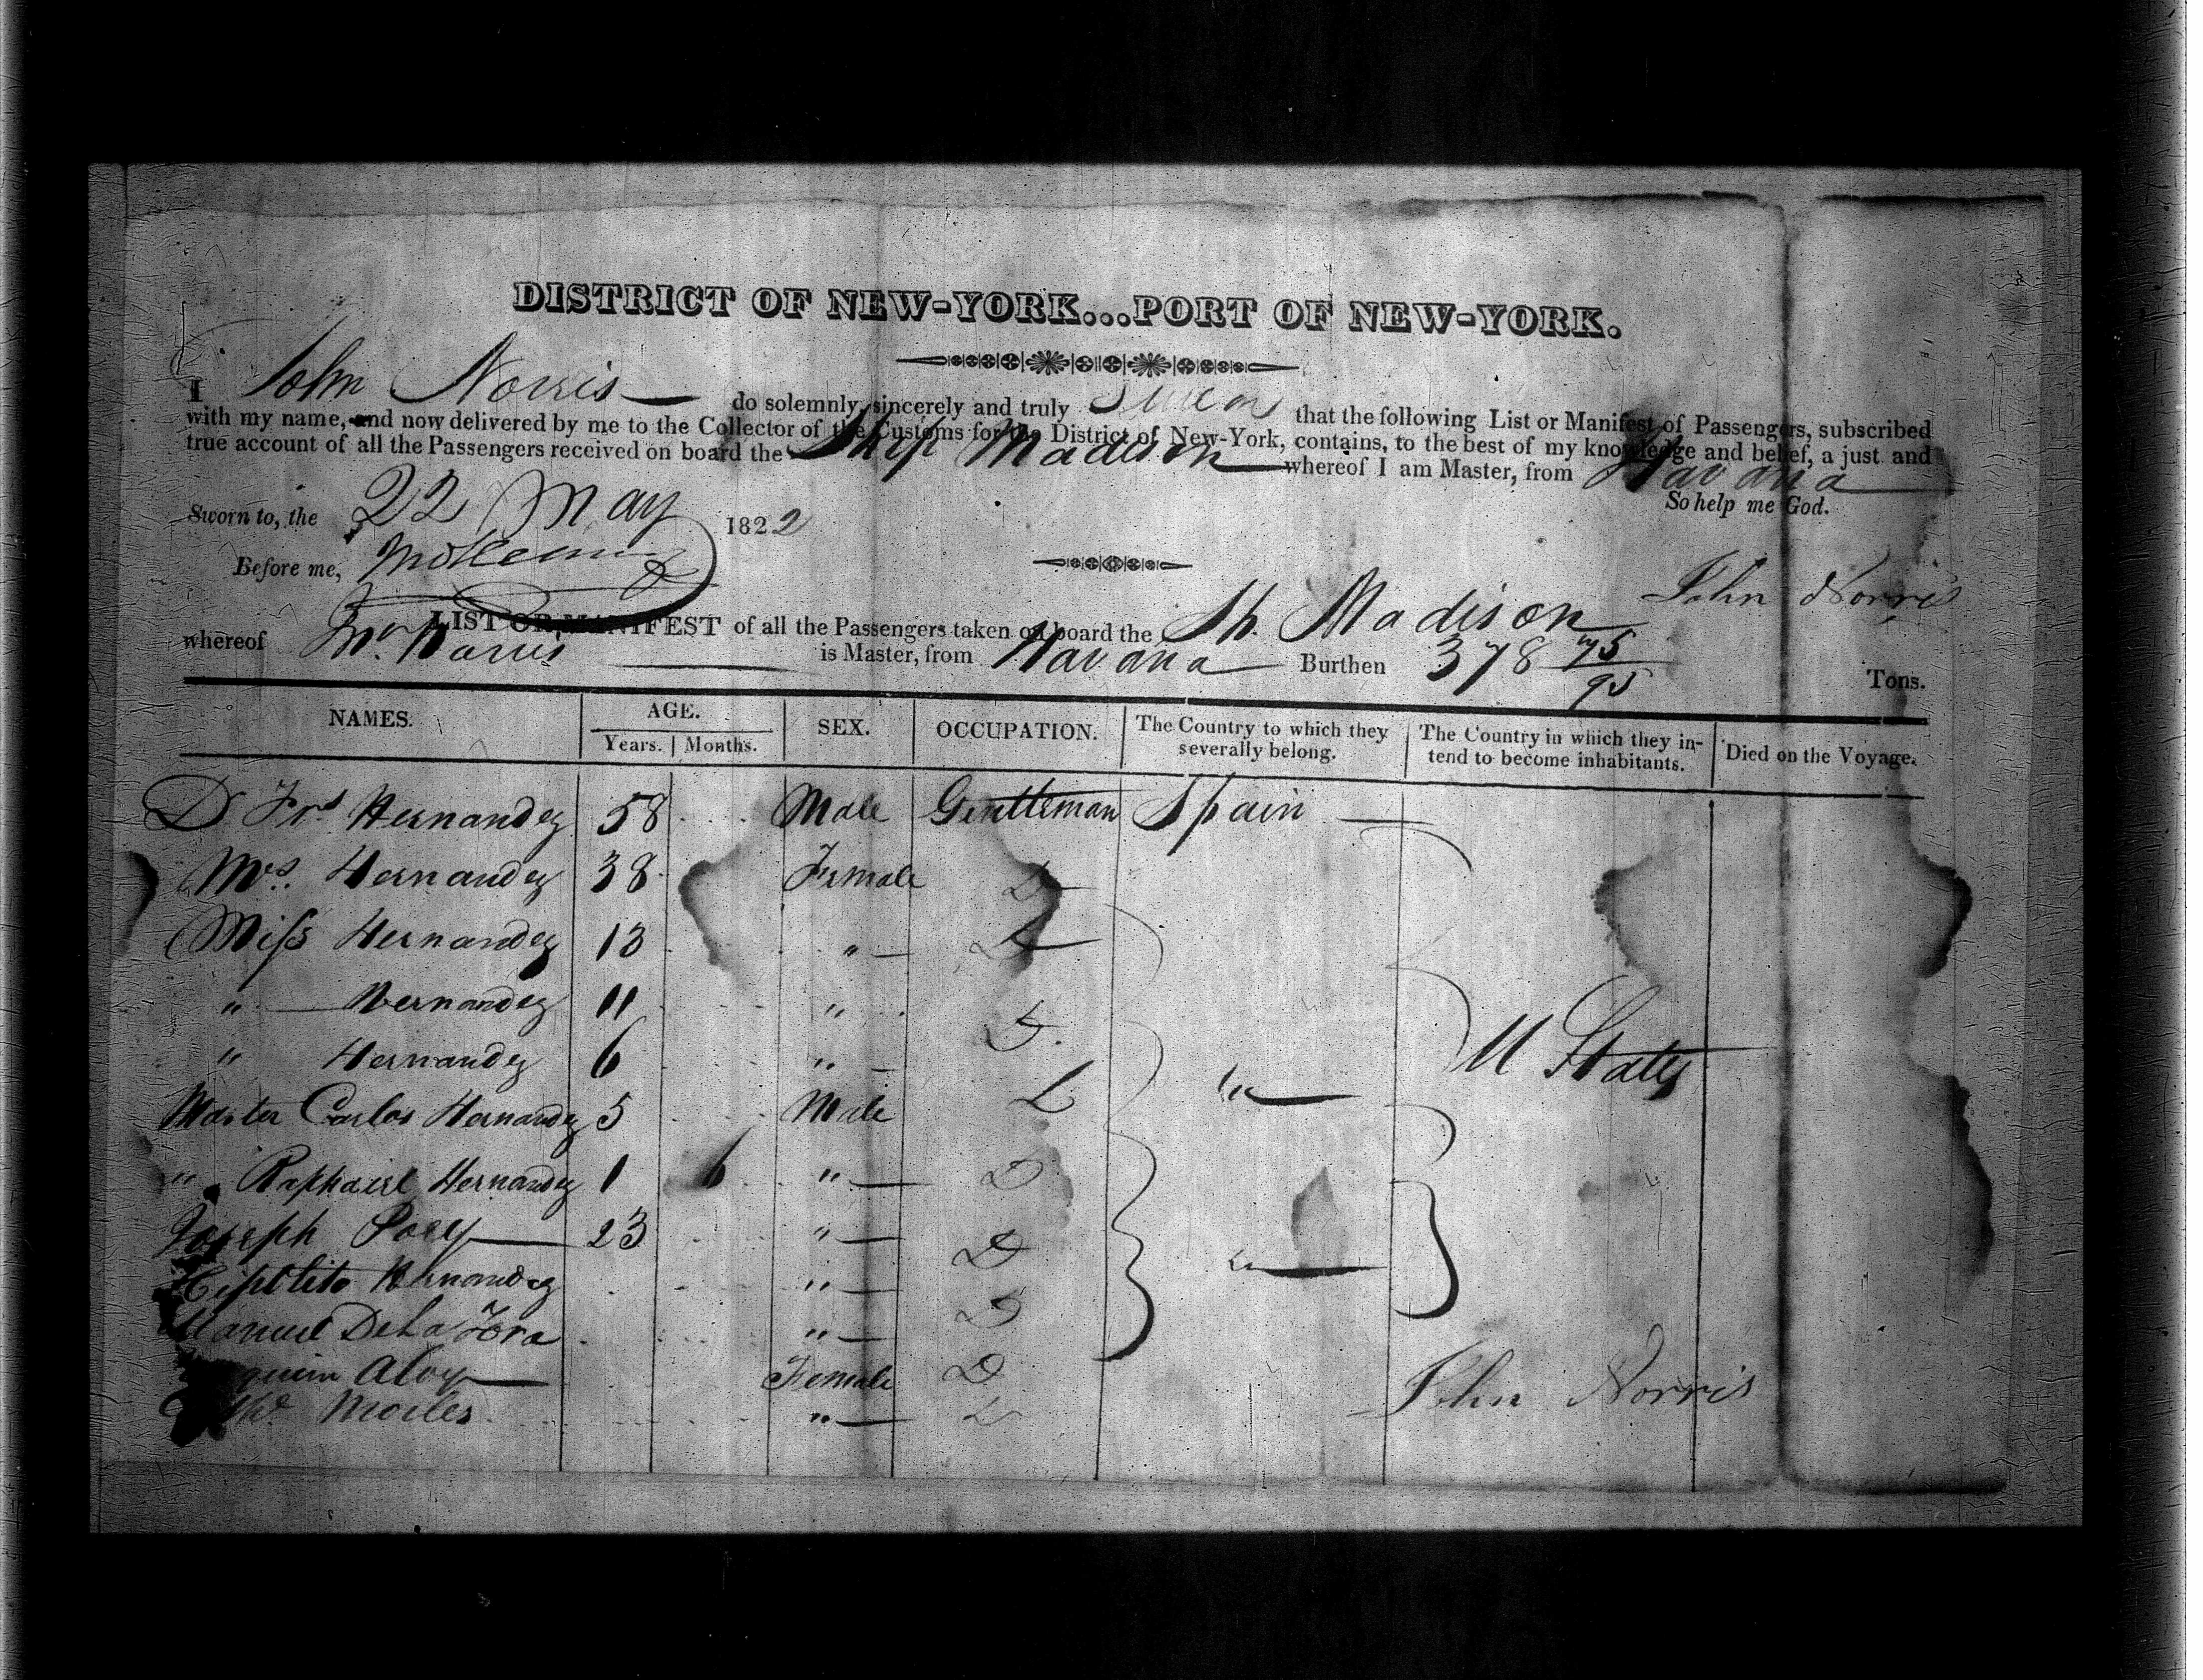 DISTRICT OF NEW-YORK...PORT OF NEW-YORK.
I John Norris do solemnly, sincerely and truly Swear that the following List or Manifest of Passengers, subscribed
with my name, and now delivered by me to the Collector of the Customs for the District of New-York, contains, to the best of my knowledge and belief, a just and
true account of all the Passengers received on board the Ship Madison whereof I am Master, from Havana
So help me God.
Sworn to, the 22 May 1822
Before me,
John Norris
LIST OR MANIFEST of all the Passengers taken on board the Sh. Madison
whereof is Master, from Havana Burthen 378 75/95 Tons.
NAMES. AGE. SEX. OCCUPATION. The Country to which they severally belong. The Country in which they intend to become inhabitants. Died on the Voyage.
Years. Months.
D Frs Hernandez 58 Male Gentleman Spain
Mrs. Hernandez 38 Female D
Miss Hernandez 13 " D
" Hernandez 11 " D.
" Hernandez 6 "
Master Carlos Hernandez 5 Male D " U States
" Raphaiel Hernandez 1 6 " D
Joseph Posey 23 " D "
Hernandez " D
Manuel De La "
Aloy Female D
" D
John Norris